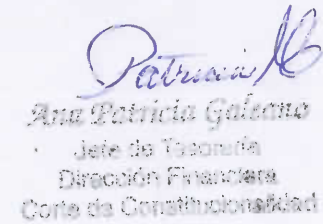 Patricia
Ana Patricia Galeano
Jefe de Tesorería
Dirección Financiera
Corte de Constitucionalidad